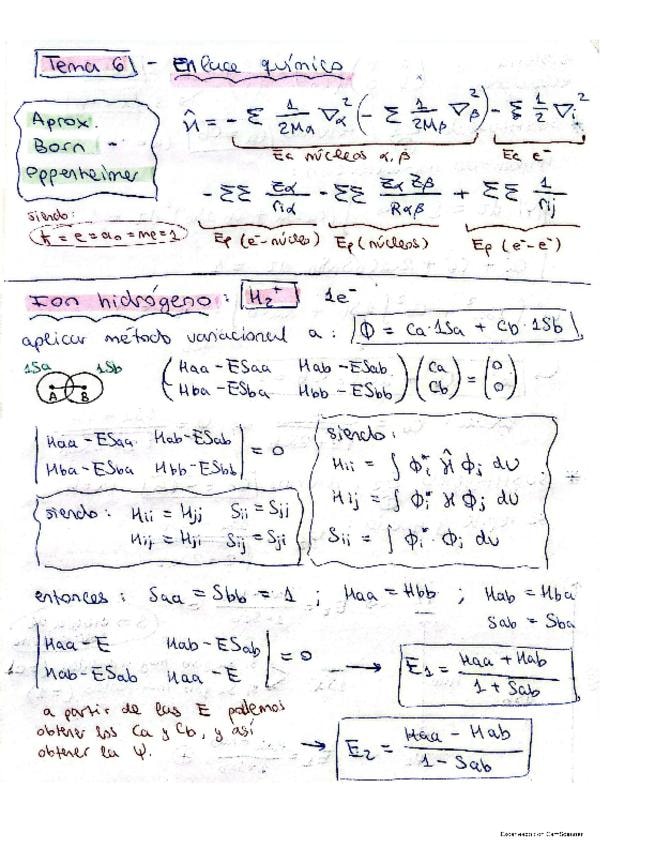 Tema 6 - Enlace químico
Aprox.
Born -
Oppenheimer
Ĥ = - Σ 1/2Mα ∇α² (- Σ 1/2Mβ ∇β²) - Σ 1/2 ∇i²
Ec núcleos α, β    Ec e⁻
- ΣΣ Zα/riα - ΣΣ ZαZβ/Rαβ + ΣΣ 1/rij
siendo:
ħ = e = a₀ = me = 1
Ep (e⁻ núcleo)    Ep (núcleos)    Ep (e⁻- e⁻)
Ion hidrógeno: H₂⁺    1e⁻
aplicar método variacional a: ϕ = Ca·1Sa + Cb·1Sb
1Sa    1Sb
A    B
(Haa - ESaa    Hab - ESab) (Ca) = (0)
(Hba - ESba    Hbb - ESbb) (Cb)    (0)
|Haa - ESaa    Hab - ESab| = 0
|Hba - ESba    Hbb - ESbb|
siendo:
Hii = ∫ ϕi* Ĥ ϕi dv
Hij = ∫ ϕi* H ϕj dv
Sii = ∫ ϕi* · ϕi dv
siendo: Hii = Hjj    Sii = Sjj
Hij = Hji    Sij = Sji
entonces: Saa = Sbb = 1 ; Haa = Hbb ; Hab = Hba
Sab = Sba
|Haa - E    Hab - ESab| = 0 → E₁ = Haa + Hab / 1 + Sab
|Hab - ESab    Haa - E|
a partir de las E podemos
obtener los Ca y Cb, y así
obtener la Ψ.
→ E₂ = Haa - Hab / 1 - Sab
Escaneado con CamScanner